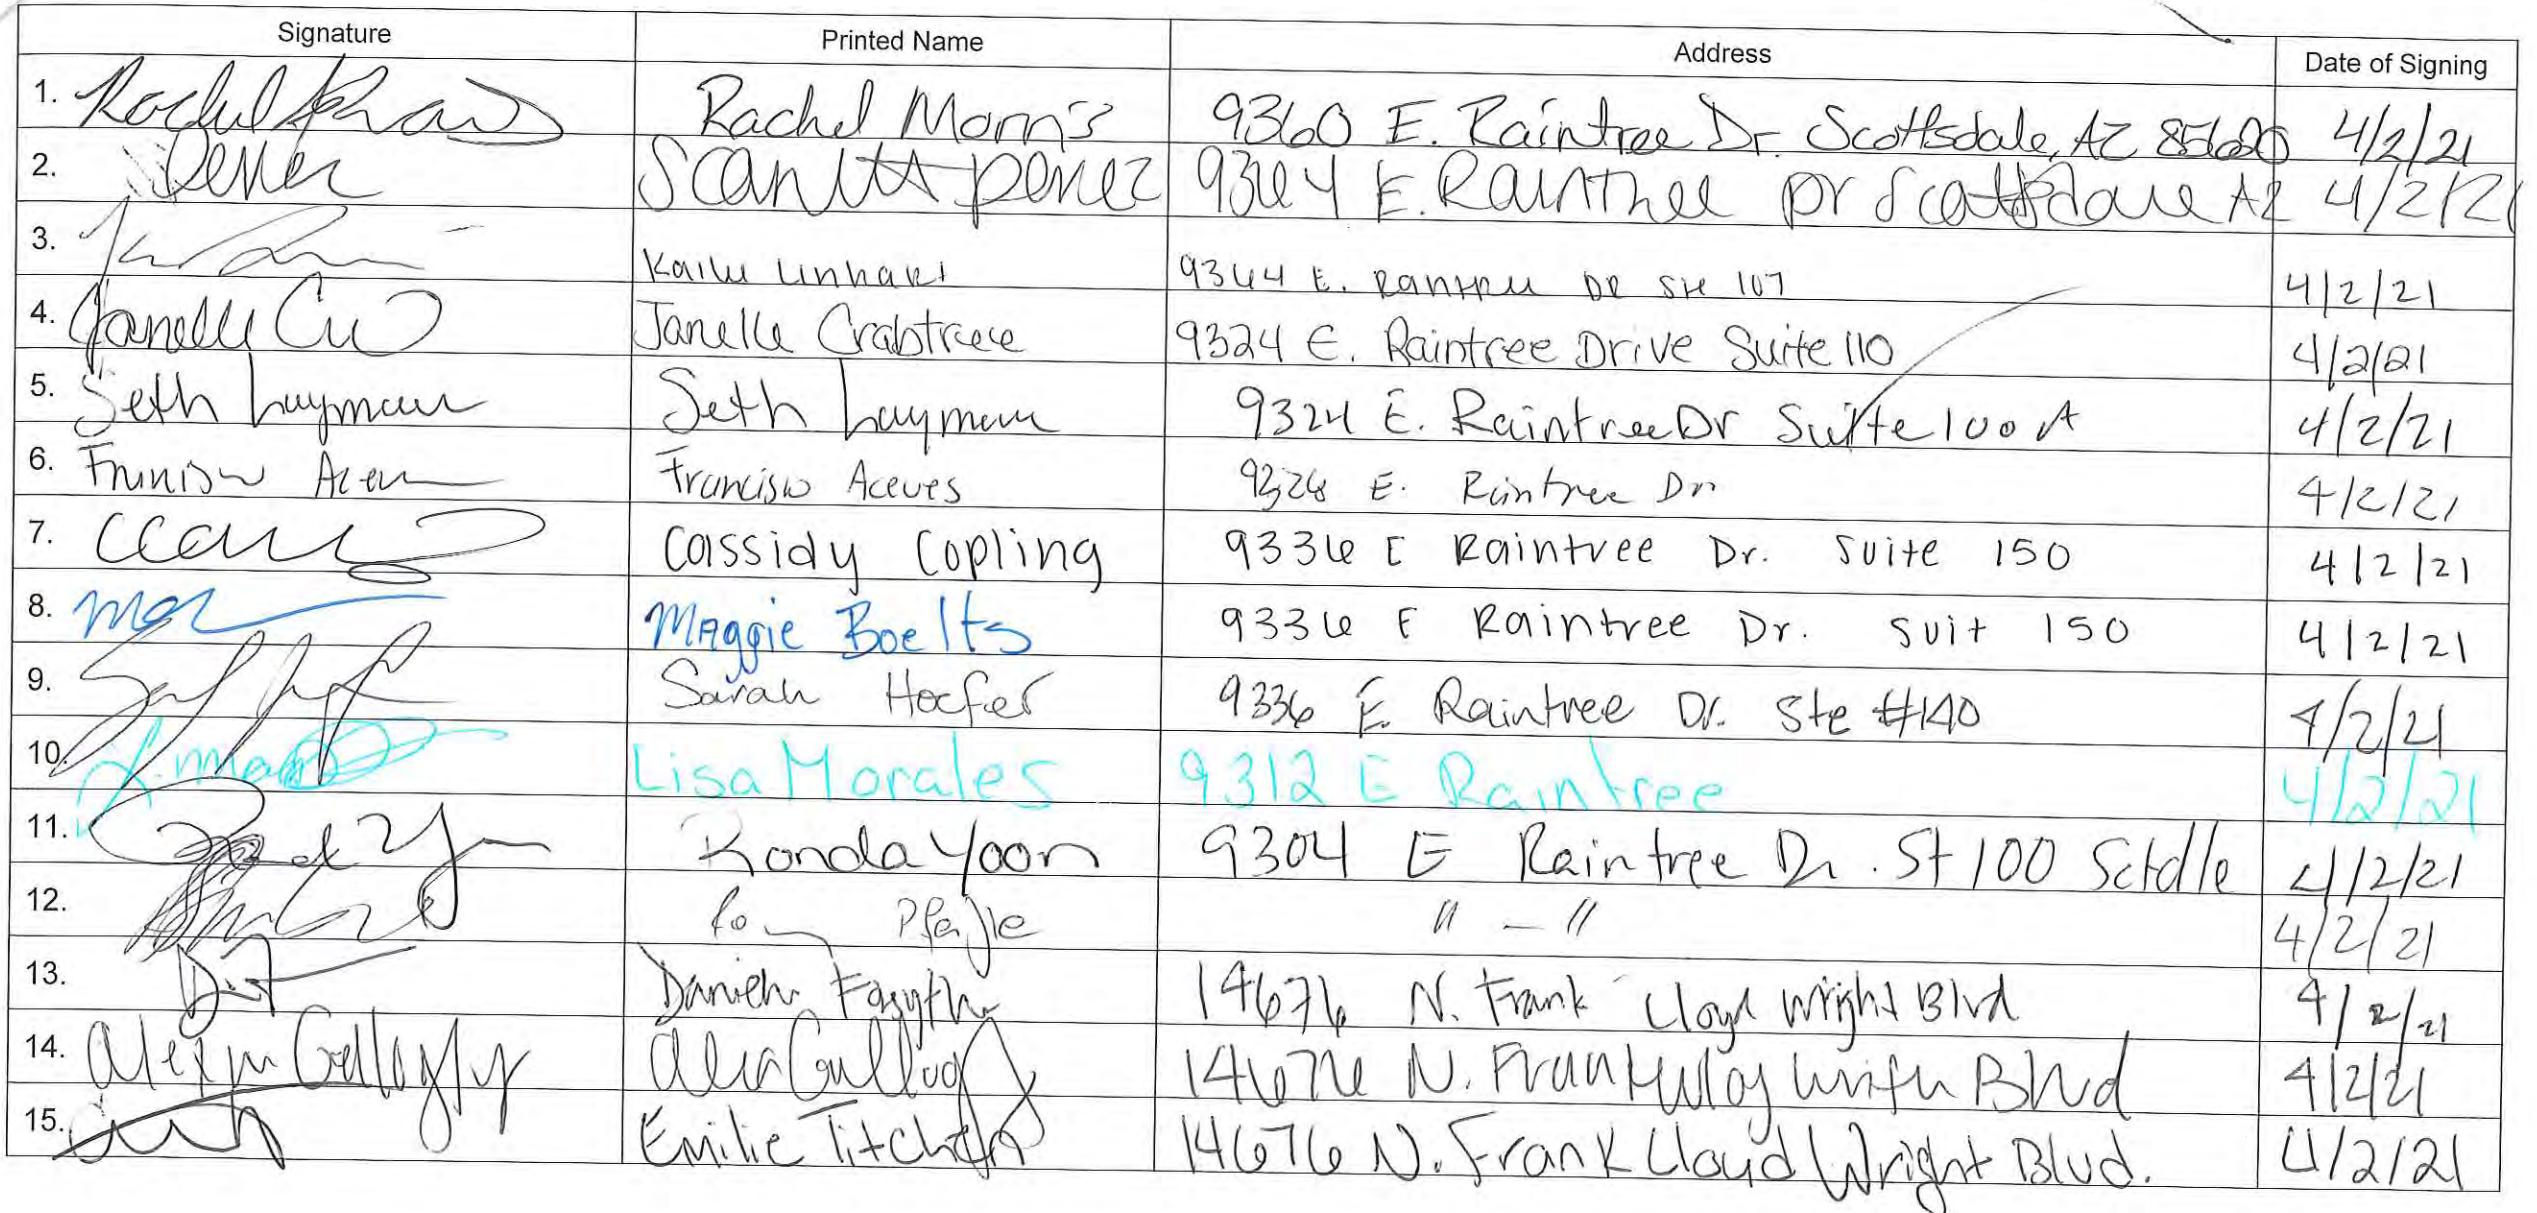 Signature Printed Name Address Date of Signing
1. Rachel Morris 9360 E. Raintree Dr. Scottsdale, AZ 4/2/21
2. Perez Scarlett perez 9364 E. Raintree Dr Scottsdale AZ 4/2/21
3. Kailu Linhart 9344 E. Raintree DR Ste 107 4/2/21
4. Janelle Janelle Crabtree 9324 E. Raintree Drive Suite 110 4/2/21
5. Seth Layman Seth Layman 9324 E. Raintree Dr Suite 100 A 4/2/21
6. Francisco Francisco Aceves E. Raintree Dr 4/2/21
7. Cassidy Copling 9336 E Raintree Dr. Suite 150 4/2/21
8. Maggie Boelts 9336 E Raintree Dr. Suit 150 4/2/21
9. Sarah Hoefer 9336 E. Raintree Dr. Ste #140 4/2/21
10. Lisa Morales 9312 E Raintree 4/2/21
11. Ronda Yoon 9304 E Raintree Dr. St 100 Sctdle 4/2/21
12. " — " 4/2/21
13. Forsythe 14676 N. Frank Lloyd Wright Blvd 4/2/21
14. 14676 N. Frank Blvd 4/2/21
15. Emilie 14676 N. Frank Lloyd Wright Blvd. 4/2/21